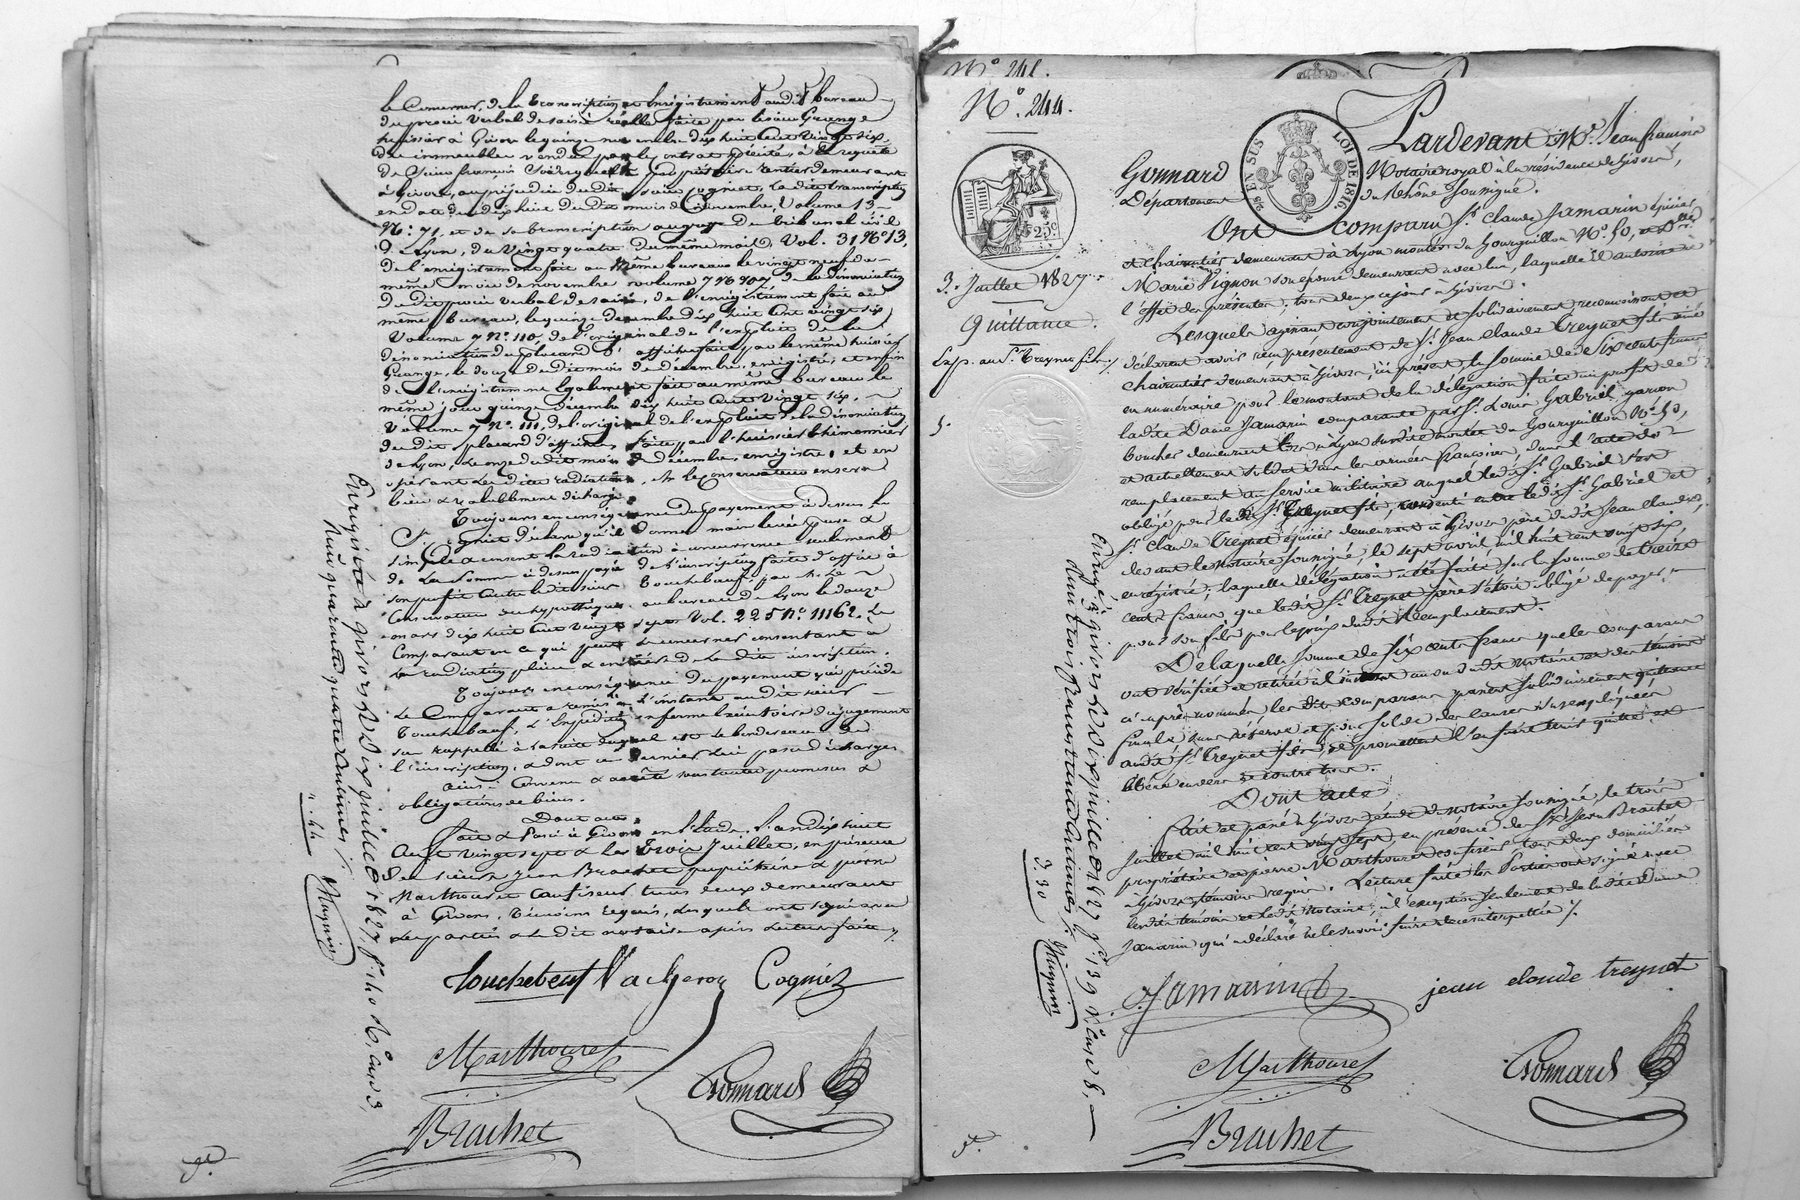 le Concerner, de la transcription et enregistrement audit bureau
du procès verbal de saisie réelle faite par le sieur Grange
huissier à Givors le quinze novembre dix huit cent vingt six
des immeubles vendus par les contrats précités, à la requête
de Sieur François
à Givors, au préjudice dudit sieur Cogniet, la dite transcription
en date du dix huit dudit mois de Novembre, Volume 13
N.º 71, et de sa transcription au greffe du tribunal civil
de Lyon, du vingt quatre du même mois Vol. 31 Nº 13,
de l'enregistrement fait au même bureau le vingt neuf de
même mois de novembre volume 7 Nº 107 de la dénonciation
du dit procès verbal de saisie, de l'enregistrement fait au
même bureau, le quinze décembre dix huit cent vingt six
Volume 7 Nº 110, de l'original de l'exploit de la
dénonciation du placard d'affiches faite par le même huissier
Grange, le douze dudit mois de décembre, enregistré, et enfin
de l'enregistrement également fait au même bureau le
même jour quinze décembre dix huit cent vingt six,
Volume 7 Nº 111, de l'original de l'exploit de la dénonciation
du dit placard d'affiches faite par l'huissier Thimonnier
de Lyon, le onze dudit mois de décembre, enregistré, et en
opérant les dites radiations, M. le conservateur en sera
bien & valablement déchargé.
Toujours en conséquence du payement ci dessus le
Sr. Cogniet déclare qu'il donne main levée pure &
simple & consent la radiation à concurrence seulement
de la somme ci dessus payée de l'inscription faite d'office à
son profit contre le dit sieur Touchebeuf, par M. le
Conservateur des hypothèques au bureau de Lyon le douze
mars dix huit cent vingt sept Vol. 225 Nº 11162. Le
Comparant en ce qui peut le concerner consentant à
la radiation pleine & entière de la dite inscription.
Toujours en conséquence du payement qui précède
le Comparant a remis à l'instant audit sieur
Touchebeuf, l'expédition en forme exécutoire du jugement
sus rappellé à la suite duquel est le bordereau de
l'inscription, & dont ce dernier lui passe décharge.
Ainsi Convenu & arrêté sous toutes promesses &
obligations de biens.
Dont acte
Fait & Passé à Givors en l'étude, l'an dix huit
Cent vingt sept & le trois Juillet, en présence
des sieurs Jean Brachet propriétaire & pierre
Marthouret Confiseur, tous deux demeurant
à Givors, témoins requis, lesquels ont signé avec
les parties & le dit notaire après lecture faite.
Touchebeuf Vacheron Cogniet
Marthouret
Gonnard
Brachet
Enregistré à givors le dix juillet 1827 fº
Reçu quarante quatre centimes
". 44
Mugnier
Nº. 241.
Nº. 244.
3. Juillet 1827.
Quittance.
Exp. au Sr. Treynet fils
5.
25 EN SUS
LOI DE 1816.
25c
Pardevant Me. Jean francois
Gonnard Notaire royal à la résidence de Givors,
Département du Rhône Soussigné.
Ont comparu Sr. Claude Jamarin épicier
et chaircutier demeurant à Lyon montée du Gourguillon Nº. 50, et De.
Marie Pignon son épouse demeurant avec lui, laquelle il autorise
l'effet des présentes, tous deux ce jour à Givors.
Lesquels agissant conjointement et solidairement reconnaissent et
déclarent avoir reçu présentement de Sr. Jean claude Treynet fils ainé
Chaircutier demeurant à Givors, ici présent, la somme de de Six cents francs
en numéraire pour le montant de la délégation faite au profit de
ladite Dame Jamarin comparante par Sr. Louis Gabriel garçon
boucher demeurant lors à Lyon susdite montée du Gourguillon Nº. 50,
et actuellement soldat dans les armées françaises, dans l'acte de
remplacement au service militaire auquel ledit Sr. Gabriel s'est
obligé pour le dit Sr. Treynet fils, consenti entre ledit Sr. Gabriel et
Sr. Claude Treynet épicier demeurant à Givors père dudit Jean claude,
devant le notaire soussigné, le sept avril, mil huit cent vingt six,
enregistré, laquelle délégation a été faite sur la somme de treize
cents francs que ledit Sr. Treynet père s'étoit obligé de payer
pour son fils pour le prix dudit Remplacement.
De laquelle somme de Six cents francs que les comparans
ont vérifiée et retirée à l'instant au vu dudit notaire et des témoins
ci après nommés les dits comparans passent solidairement quittance
finale sans réserve et pour solde des causes susexpliquées
audit Sr. Treynet fils, et promettent l'en faire tenir quitte et
libéré envers et contre tous.
Dont acte
Fait et passé à Givors étude du notaire soussigné, le trois
Juillet mil huit cent vingt sept, en présence de Srs. Jean Brachet
propriétaire et pierre Marthouret confiseur tous deux domiciliés
à Givors, témoins requis. Lecture faite les Parties ont signé avec
lesdits témoins et ledit Notaire, à l'exception seulement de la dite Dame
Jamarin qui a déclaré ne le savoir faire de ce interpellée
Jamarin
jean claude treynet
Marthouret
Gonnard
Brachet
Enregé à givors le dix juillet 1827 fº. 139 Vº. Case 8,
Reçu trois francs trente centimes
3.30
Mugnier